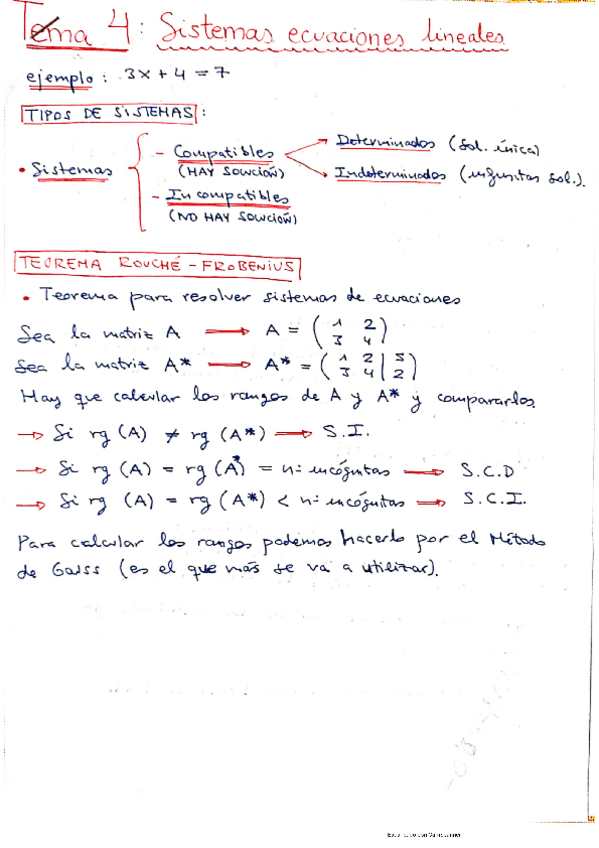 Tema 4: Sistemas ecuaciones lineales
ejemplo: 3x + 4 = 7
TIPOS DE SISTEMAS:
• Sistemas
- Compatibles
(HAY SOLUCIÓN)
Determinados (sol. única)
Indeterminados (infinitas sol.).
- Incompatibles
(NO HAY SOLUCIÓN)
TEOREMA ROUCHÉ-FROBENIUS
• Teorema para resolver sistemas de ecuaciones
Sea la matriz A → A = ( 1 2
3 4 )
Sea la matriz A* → A* = ( 1 2 | 5
3 4 | 2 )
Hay que calcular los rangos de A y A* y compararlos.
→ Si rg (A) ≠ rg (A*) → S.I.
→ Si rg (A) = rg (A*) = nº incógnitas → S.C.D
→ Si rg (A) = rg (A*) < nº incógnitas → S.C.I.
Para calcular los rangos podemos hacerlo por el Método
de Gauss (es el que más se va a utilizar).